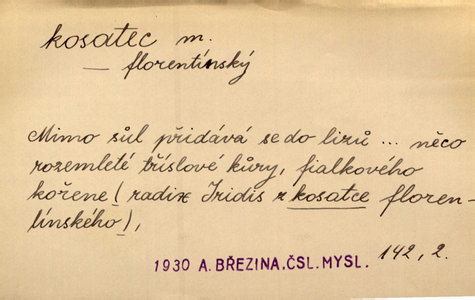 kosatec m.
— florentínský
Mimo sůl přidává se do lizů ... něco
rozemleté tříslové kůry, fialkového
kořene (radix Iridis z kosatce floren-
tínského),
1930 A. BŘEZINA, ČSL. MYSL. 142, 2.